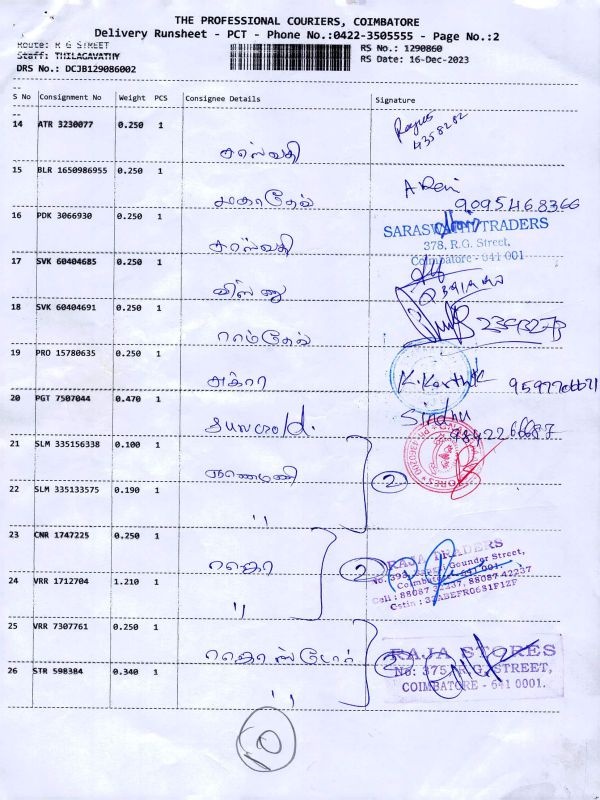 THE PROFESSIONAL COURIERS, COIMBATORE
Delivery Runsheet - PCT - Phone No.:0422-3505555 - Page No.:2
Route: R G STREET
Staff: THILAGAVATHY
DRS No.: DCJB129086002
RS No.: 1290860
RS Date: 16-Dec-2023
S No Consignment No Weight PCS Consignee Details Signature
14 ATR 3230077 0.250 1
4358282
சரஸ்வதி
15 BLR 1650986955 0.250 1
மகாதேவ் 9095468366
16 PDK 3066930 0.250 1
SARASWATHI TRADERS
சரஸ்வதி 378, R.G. Street,
Coimbatore - 641 001
17 SVK 60404685 0.250 1
விஸ்ணு
18 SVK 60404691 0.250 1
ராம்தேவ்
19 PRO 15780635 0.250 1
K. Karthik
20 PGT 7507044 0.470 1
Sindhu
21 SLM 335156338 0.100 1
2
22 SLM 335133575 0.190 1
"
23 CNR 1747225 0.250 1
RAJA TRADERS
ராஜா 2
Gounder Street,
Coimbatore - 641 001.
Cell : 88087 32237, 88087 42237
24 VRR 1712704 1.210 1
"
25 VRR 7307761 0.250 1
RAJA STORES
ராஜா ஸ்டோர் 2 No: 375, R.G. STREET,
COIMBATORE - 641 0001.
26 STR 598384 0.340 1
"
10